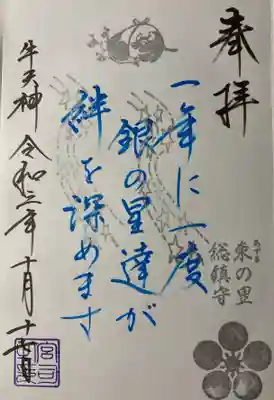 奉拝
東の里
総鎮守
一年に一度
銀の星達が
絆を深めます
牛天神 令和三年十月十七日